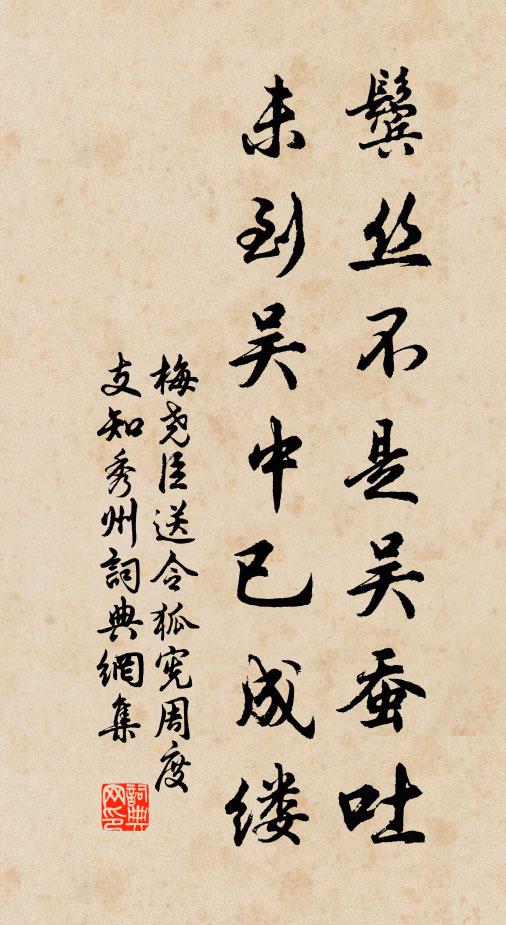 鬓丝不是吴蚕吐
未到吴中已成缕
梅尧臣送令狐宪周度
支知秀州詞典網集
詞典网印